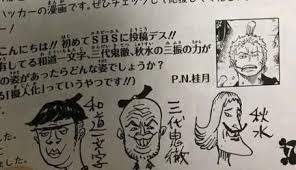 ハッカーの漫画です。ぜひチェックして
こんにちは!!初めてSBSに投稿デス!!
してる和道一文字、三代鬼徹、秋水の三振の力が
の姿があったらどんな姿でしょうか?
「擬人化」っていうやつです!!)
P.N.桂月
和道一文字
三代鬼徹
秋水